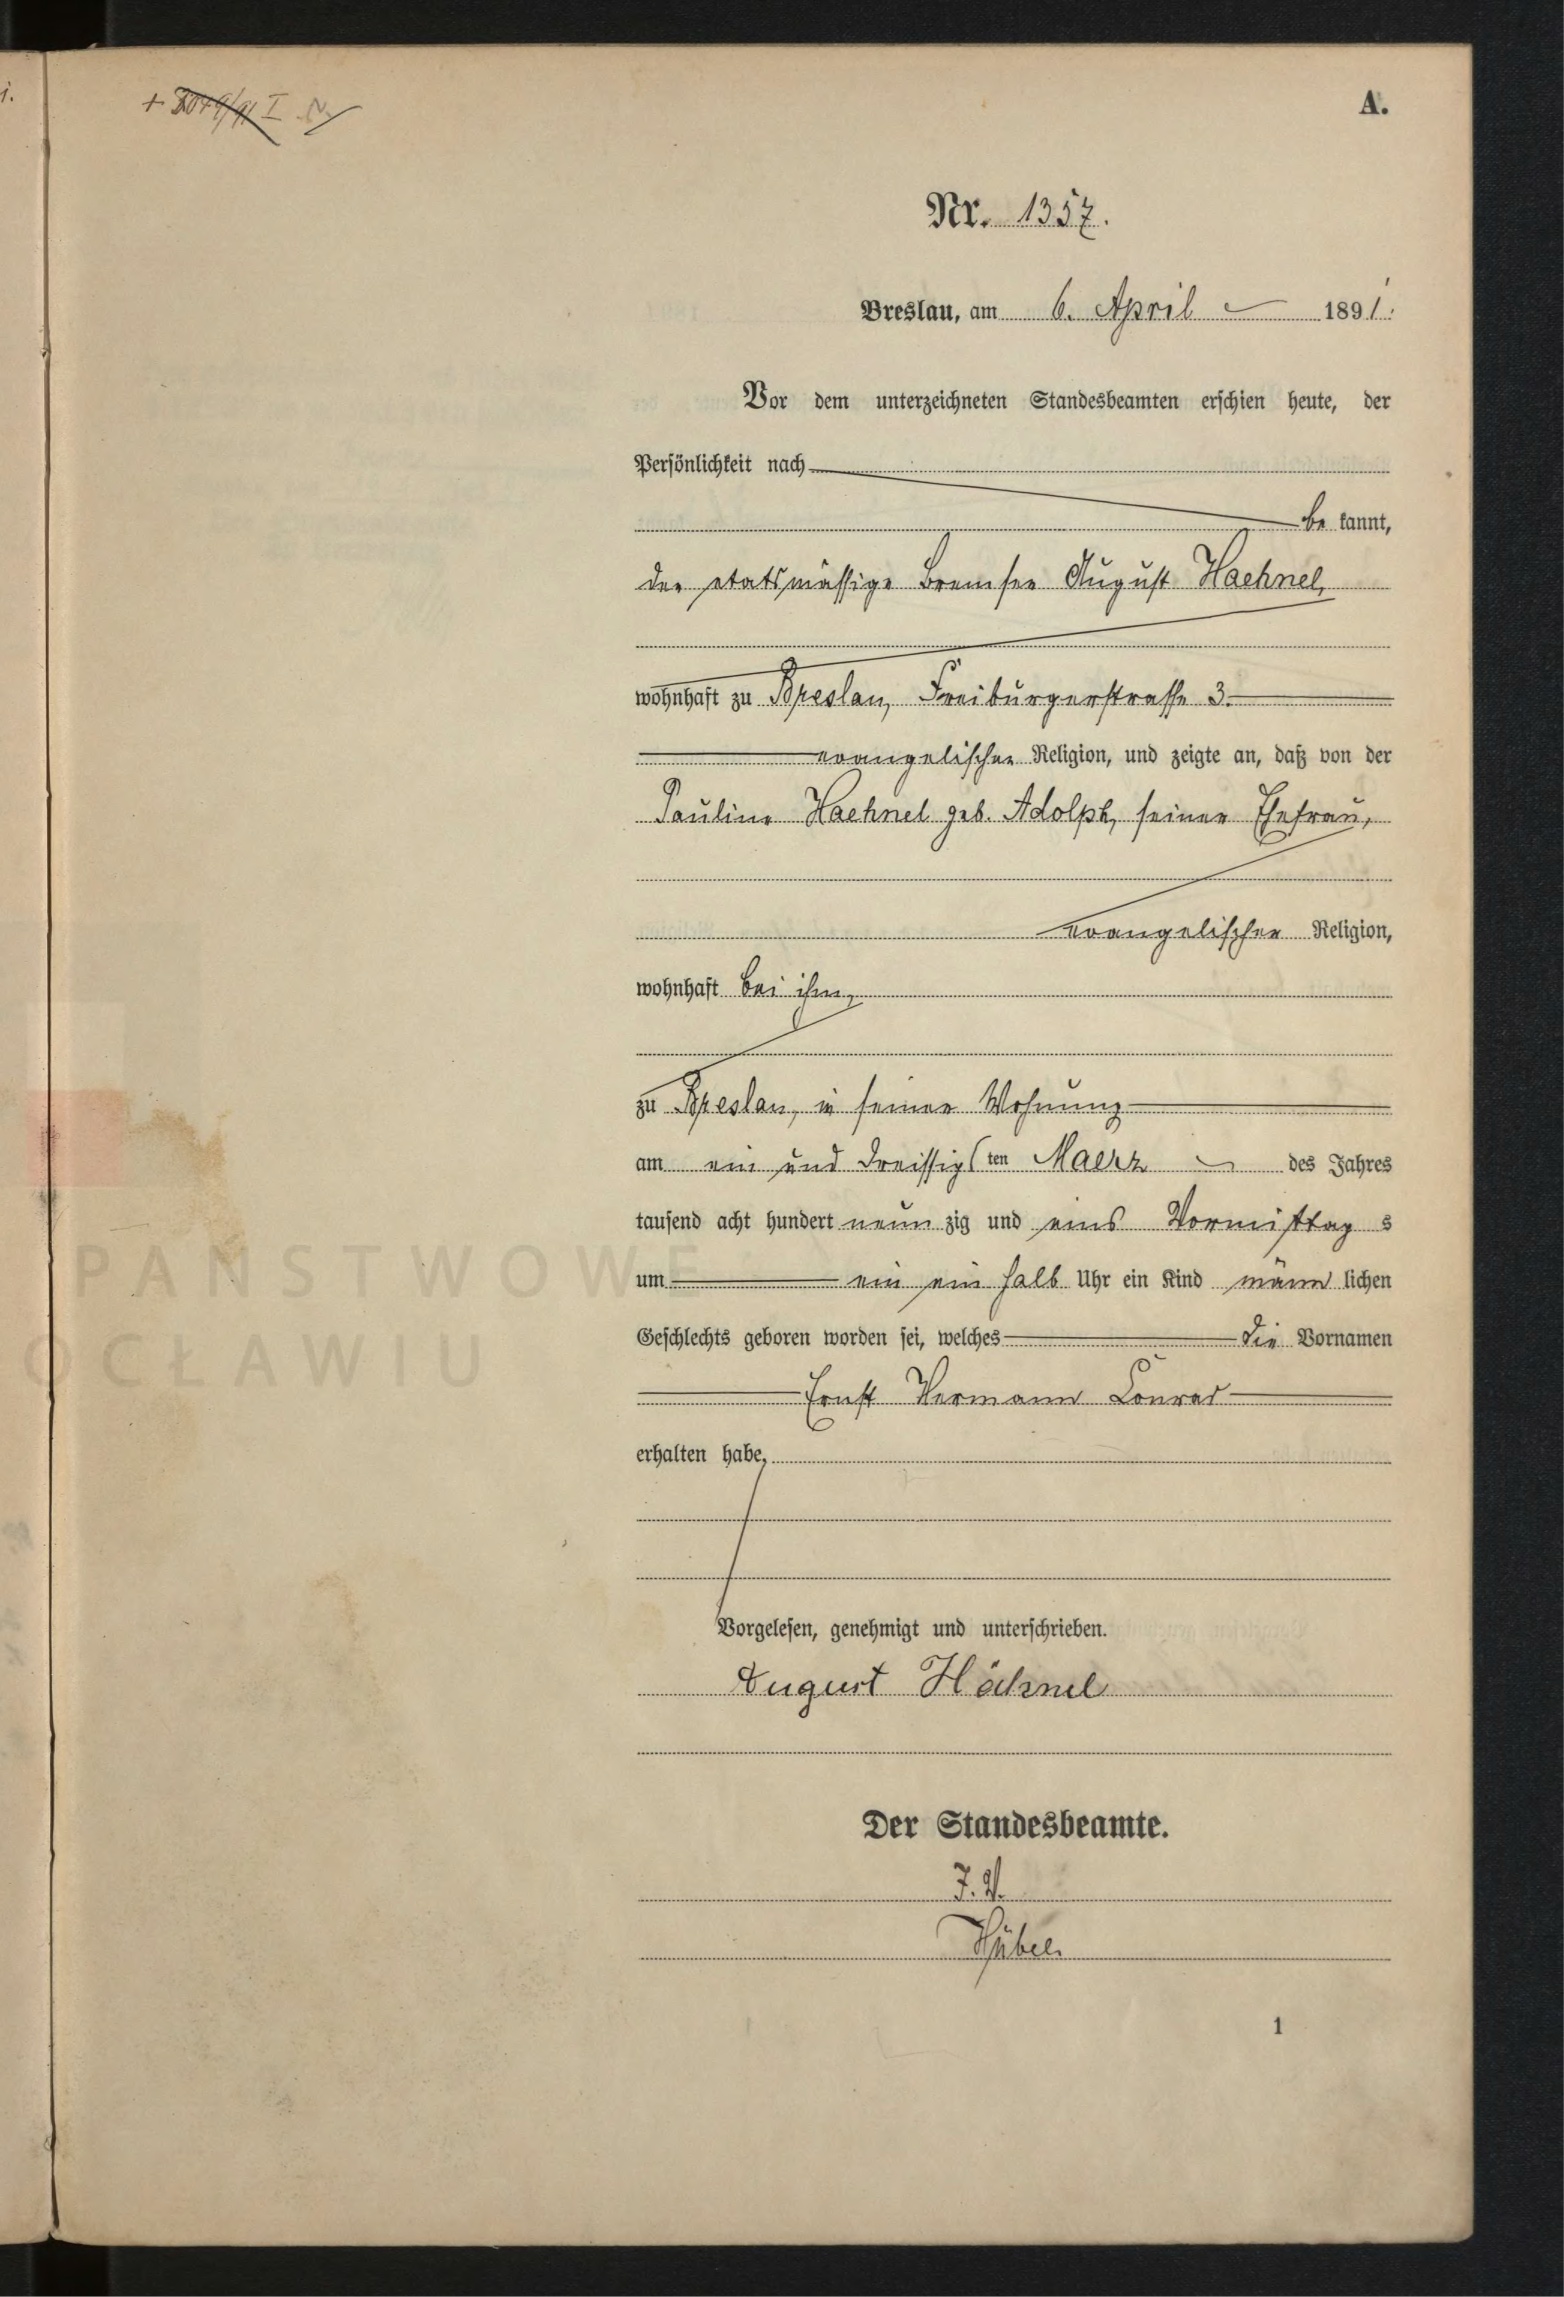 A.
Nr. 1357.
Breslau, am 6. April 1891.
Vor dem unterzeichneten Standesbeamten erschien heute, der
Persönlichkeit nach
be kannt,
der etatsmässige Bremser August Haehnel,
wohnhaft zu Breslau, Freiburgerstrasse 3.
evangelischer Religion, und zeigte an, daß von der
Pauline Haehnel geb. Adolph, seiner Ehefrau,
evangelischer Religion,
wohnhaft bei ihm,
zu Breslau, in seiner Wohnung
am ein und dreissigsten Maerz des Jahres
tausend acht hundert neun zig und eins Vormittag s
um ein ein halb Uhr ein Kind männ lichen
Geschlechts geboren worden sei, welches die Vornamen
Ernst Hermann Conrad
erhalten habe,
Vorgelesen, genehmigt und unterschrieben.
August Hähnel
Der Standesbeamte.
J. V.
1
PANSTWOWE
OCŁAWIU